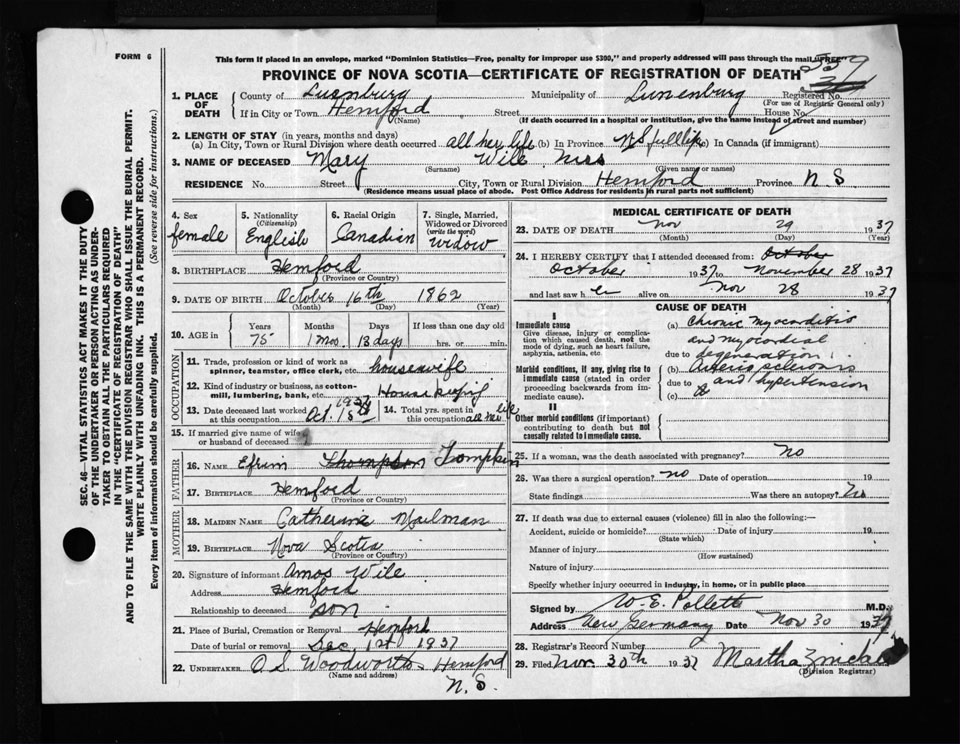 FORM 6
This form if placed in an envelope, marked "Dominion Statistics—Free, penalty for improper use $300," and properly addressed will pass through the mail "FREE"
PROVINCE OF NOVA SCOTIA—CERTIFICATE OF REGISTRATION OF DEATH
559
1. PLACE OF DEATH
County of Lunenburg Municipality of Lunenburg Registered No.
(For use of Registrar General only)
If in City or Town Hemford Street House No.
(Name) (If death occurred in a hospital or institution, give the name instead of street and number)
2. LENGTH OF STAY (in years, months and days)
(a) In City, Town or Rural Division where death occurred all her life (b) In Province NS full life (c) In Canada (if immigrant)
3. NAME OF DECEASED Mary Wile Mrs
(Surname) (Given name or names)
RESIDENCE No. Street City, Town or Rural Division Hemford Province N S
(Residence means usual place of abode. Post Office Address for residents in rural parts not sufficient)
4. Sex female
5. Nationality (Citizenship) English
6. Racial Origin Canadian
7. Single, Married, Widowed or Divorced (write the word) Widow
8. BIRTHPLACE Hemford
(Province or Country)
9. DATE OF BIRTH October 16th 1862
(Month) (Day) (Year)
10. AGE in Years 75 Months 1 Mos. Days 13 days If less than one day old hrs. or min.
OCCUPATION
11. Trade, profession or kind of work as spinner, teamster, office clerk, etc. housewife
12. Kind of industry or business, as cotton-mill, lumbering, bank, etc. House keeping
13. Date deceased last worked at this occupation Oct. 15th 1937
14. Total yrs. spent in this occupation all her life
15. If married give name of wife or husband of deceased
FATHER
16. NAME Efrim Thompson Tompkin
17. BIRTHPLACE Hemford
(Province or Country)
MOTHER
18. MAIDEN NAME Catherine Mailman
19. BIRTHPLACE Nova Scotia
(Province or Country)
20. Signature of informant Amos Wile
Address Hemford
Relationship to deceased son
21. Place of Burial, Cremation or Removal Hemford
Date of burial or removal Dec 1st 1937
22. UNDERTAKER O. S. Woodworth Hemford N. S.
(Name and address)
MEDICAL CERTIFICATE OF DEATH
23. DATE OF DEATH Nov 29 1937
(Month) (Day) (Year)
24. I HEREBY CERTIFY that I attended deceased from: October
October 1937 to November 28 1937
and last saw her alive on Nov 28 1937
CAUSE OF DEATH
I
Immediate cause
Give disease, injury or complication which caused death, not the mode of dying, such as heart failure, asphyxia, asthenia, etc.
(a) Chronic myocarditis
and myocardial
due to degeneration
Morbid conditions, if any, giving rise to immediate cause (stated in order proceeding backwards from immediate cause).
(b) Arterio sclerosis
due to and hypertension
(c)
II
Other morbid conditions (if important) contributing to death but not causally related to immediate cause.
25. If a woman, was the death associated with pregnancy? No
26. Was there a surgical operation? no Date of operation 19
State findings Was there an autopsy? No
27. If death was due to external causes (violence) fill in also the following:—
Accident, suicide or homicide? Date of injury 19
(State which)
Manner of injury
(How sustained)
Nature of injury
Specify whether injury occurred in industry, in home, or in public place
Signed by W. E. Pollett M.D.
Address New Germany Date Nov 30 1937
28. Registrar's Record Number
29. Filed Nov. 30th 1937 Martha
(Division Registrar)
SEC. 46—VITAL STATISTICS ACT MAKES IT THE DUTY OF THE UNDERTAKER OR PERSON ACTING AS UNDERTAKER TO OBTAIN ALL THE PARTICULARS REQUIRED IN THE "CERTIFICATE OF REGISTRATION OF DEATH" AND TO FILE THE SAME WITH THE DIVISION REGISTRAR WHO SHALL ISSUE THE BURIAL PERMIT.
WRITE PLAINLY WITH UNFADING INK. THIS IS A PERMANENT RECORD.
Every item of information should be carefully supplied. (See reverse side for instructions.)